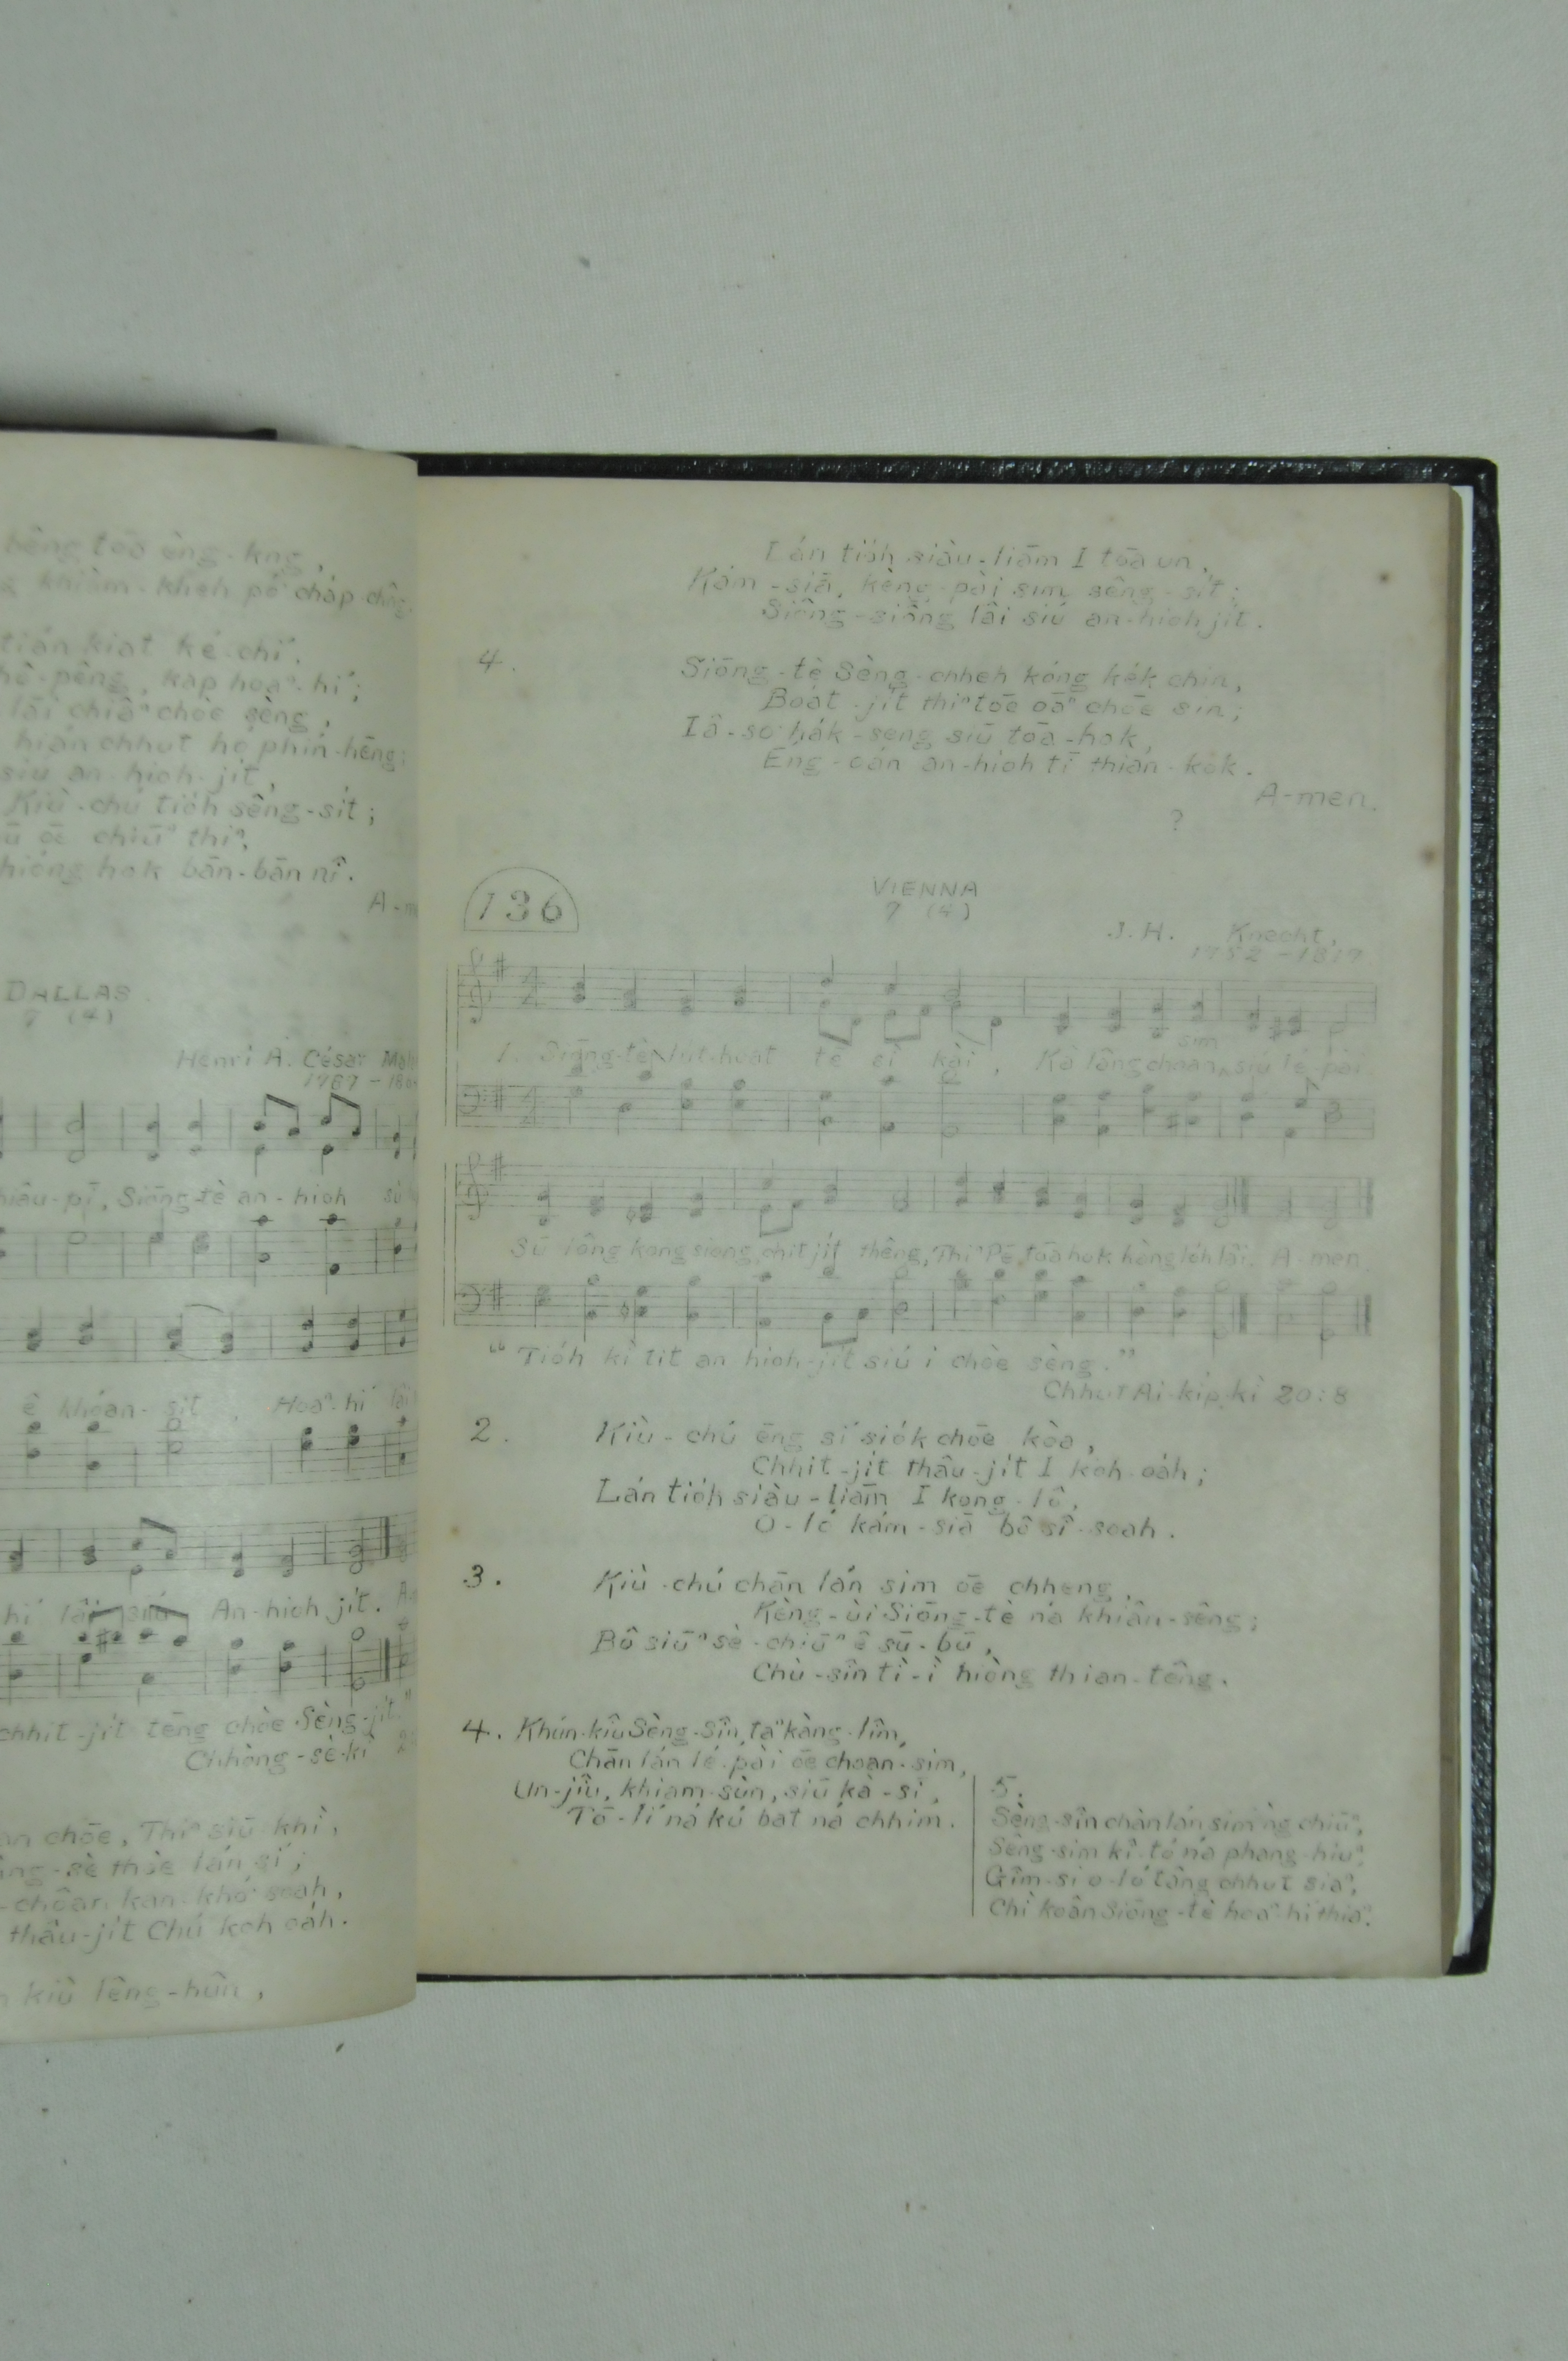 bêng tōa èng-kng,
khiàm-kheh pó͘ cháp-chêng
tián kiat ké-chí,
hê-pêng, kap hoaⁿ-hí;
lâi chiâⁿ chòe sèng,
hián chhut hó phín-hēng;
siú an-hioh-jit,
Kiù-chú tio̍h sêng-si̍t;
ū ōe chiūⁿ thiⁿ,
hióng hok bān-bān nî.
A-m
DALLAS
7 (4)
Henri A. César Mal
1787 - 186
hiâu-pī, Siōng-tè an-hioh sù
ê khóan-sit, Hoaⁿ-hí lâi
hí lâi siú An-hioh ji̍t. A
chhit-ji̍t tēng chòe Sèng-ji̍t."
Chhòng-sè-kì
an chōe, Thiⁿ siū khì,
âng-sè thòe lán sí;
-chôan kan-khó͘ soah,
thâu-ji̍t Chú koh oa̍h.
kiù lêng-hûn,
Lán tio̍h siàu-liām I tōa un,
Kám-siā, kèng-pài sim sêng-si̍t;
Siông-siông lâi siú an-hioh ji̍t.
4.
Siōng-tè Sèng-chheh kóng kek chin,
Boa̍t-ji̍t thiⁿ tōe oāⁿ chōe sin;
Iâ-so͘ ha̍k-seng siū tōa-hok,
Éng-oán an-hioh tī thian-kok.
A-men.
?
136
VIENNA
7 (4)
J. H. Knecht,
1752 - 1817
1. Siōng-tè lu̍t-hoat tē sì kài, Kà lâng choan sim siú lé-pài
Sū lông kang siong chit ji̍t thêng, Thiⁿ Pē tōa hok hèng lo̍h lâi. A-men.
"Tio̍h kì tit an hioh-ji̍t siú i chòe sèng."
Chhut Ai-ki̍p kì 20:8
2. Kiù-chú ēng sí sio̍k chōe kòa,
Chhit-ji̍t thâu-ji̍t I koh-oa̍h;
Lán tio̍h siàu-liām I kong-lô,
O-ló kám-siā bô sî-soah.
3. Kiù-chú chān lán sim ōe chheng,
Kèng-ùi Siōng-tè ná khiân-sêng;
Bô siūⁿ sè-chiūⁿ ê sū-bū,
Chù-sîn tì-ì hiòng thian-têng.
4. Khún-kiû Sèng-Sîn, taⁿ kàng-lîm,
Chān lán lé-pài ōe choan-sim,
Un-jiû, khiam-sùn, siū kà-sī,
Tō-lí ná kú bat ná chhim.
5.
Sèng-sîn chān lán sim ǹg chiūⁿ,
Sêng-sim kî-tó ná phang-hiuⁿ,
Gîm-si o-ló tâng chhut siaⁿ,
Chì koân Siōng-tè hoaⁿ-hí thiaⁿ.